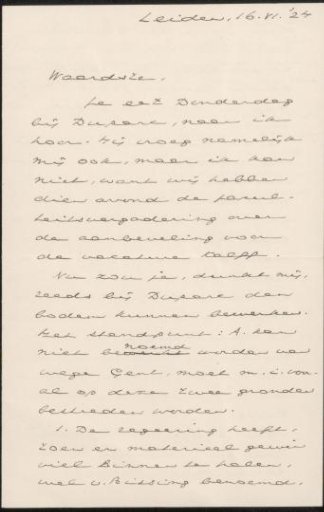 Leiden, 16.VI.'24
Waardste,
Je eet Donderdag
bij Duparc, naar ik
hoor. Hij vroeg namelijk
mij ook, maar ik kan
niet, want wij hebben
dien avond de facul-
teitsvergadering over
de aanbeveling voor
de vacature Kalff.
Nu zou je, dunkt mij,
reeds bij Duparc den
bodem kunnen bewerken.
Het standpunt: A. kan
niet benoemd worden van
wege Gent, moet m.i. voor-
al op deze twee gronden
bestreden worden.
1. De regeering heeft,
toen er materieel gewin
viel binnen te halen,
wel v. Bissing benoemd.